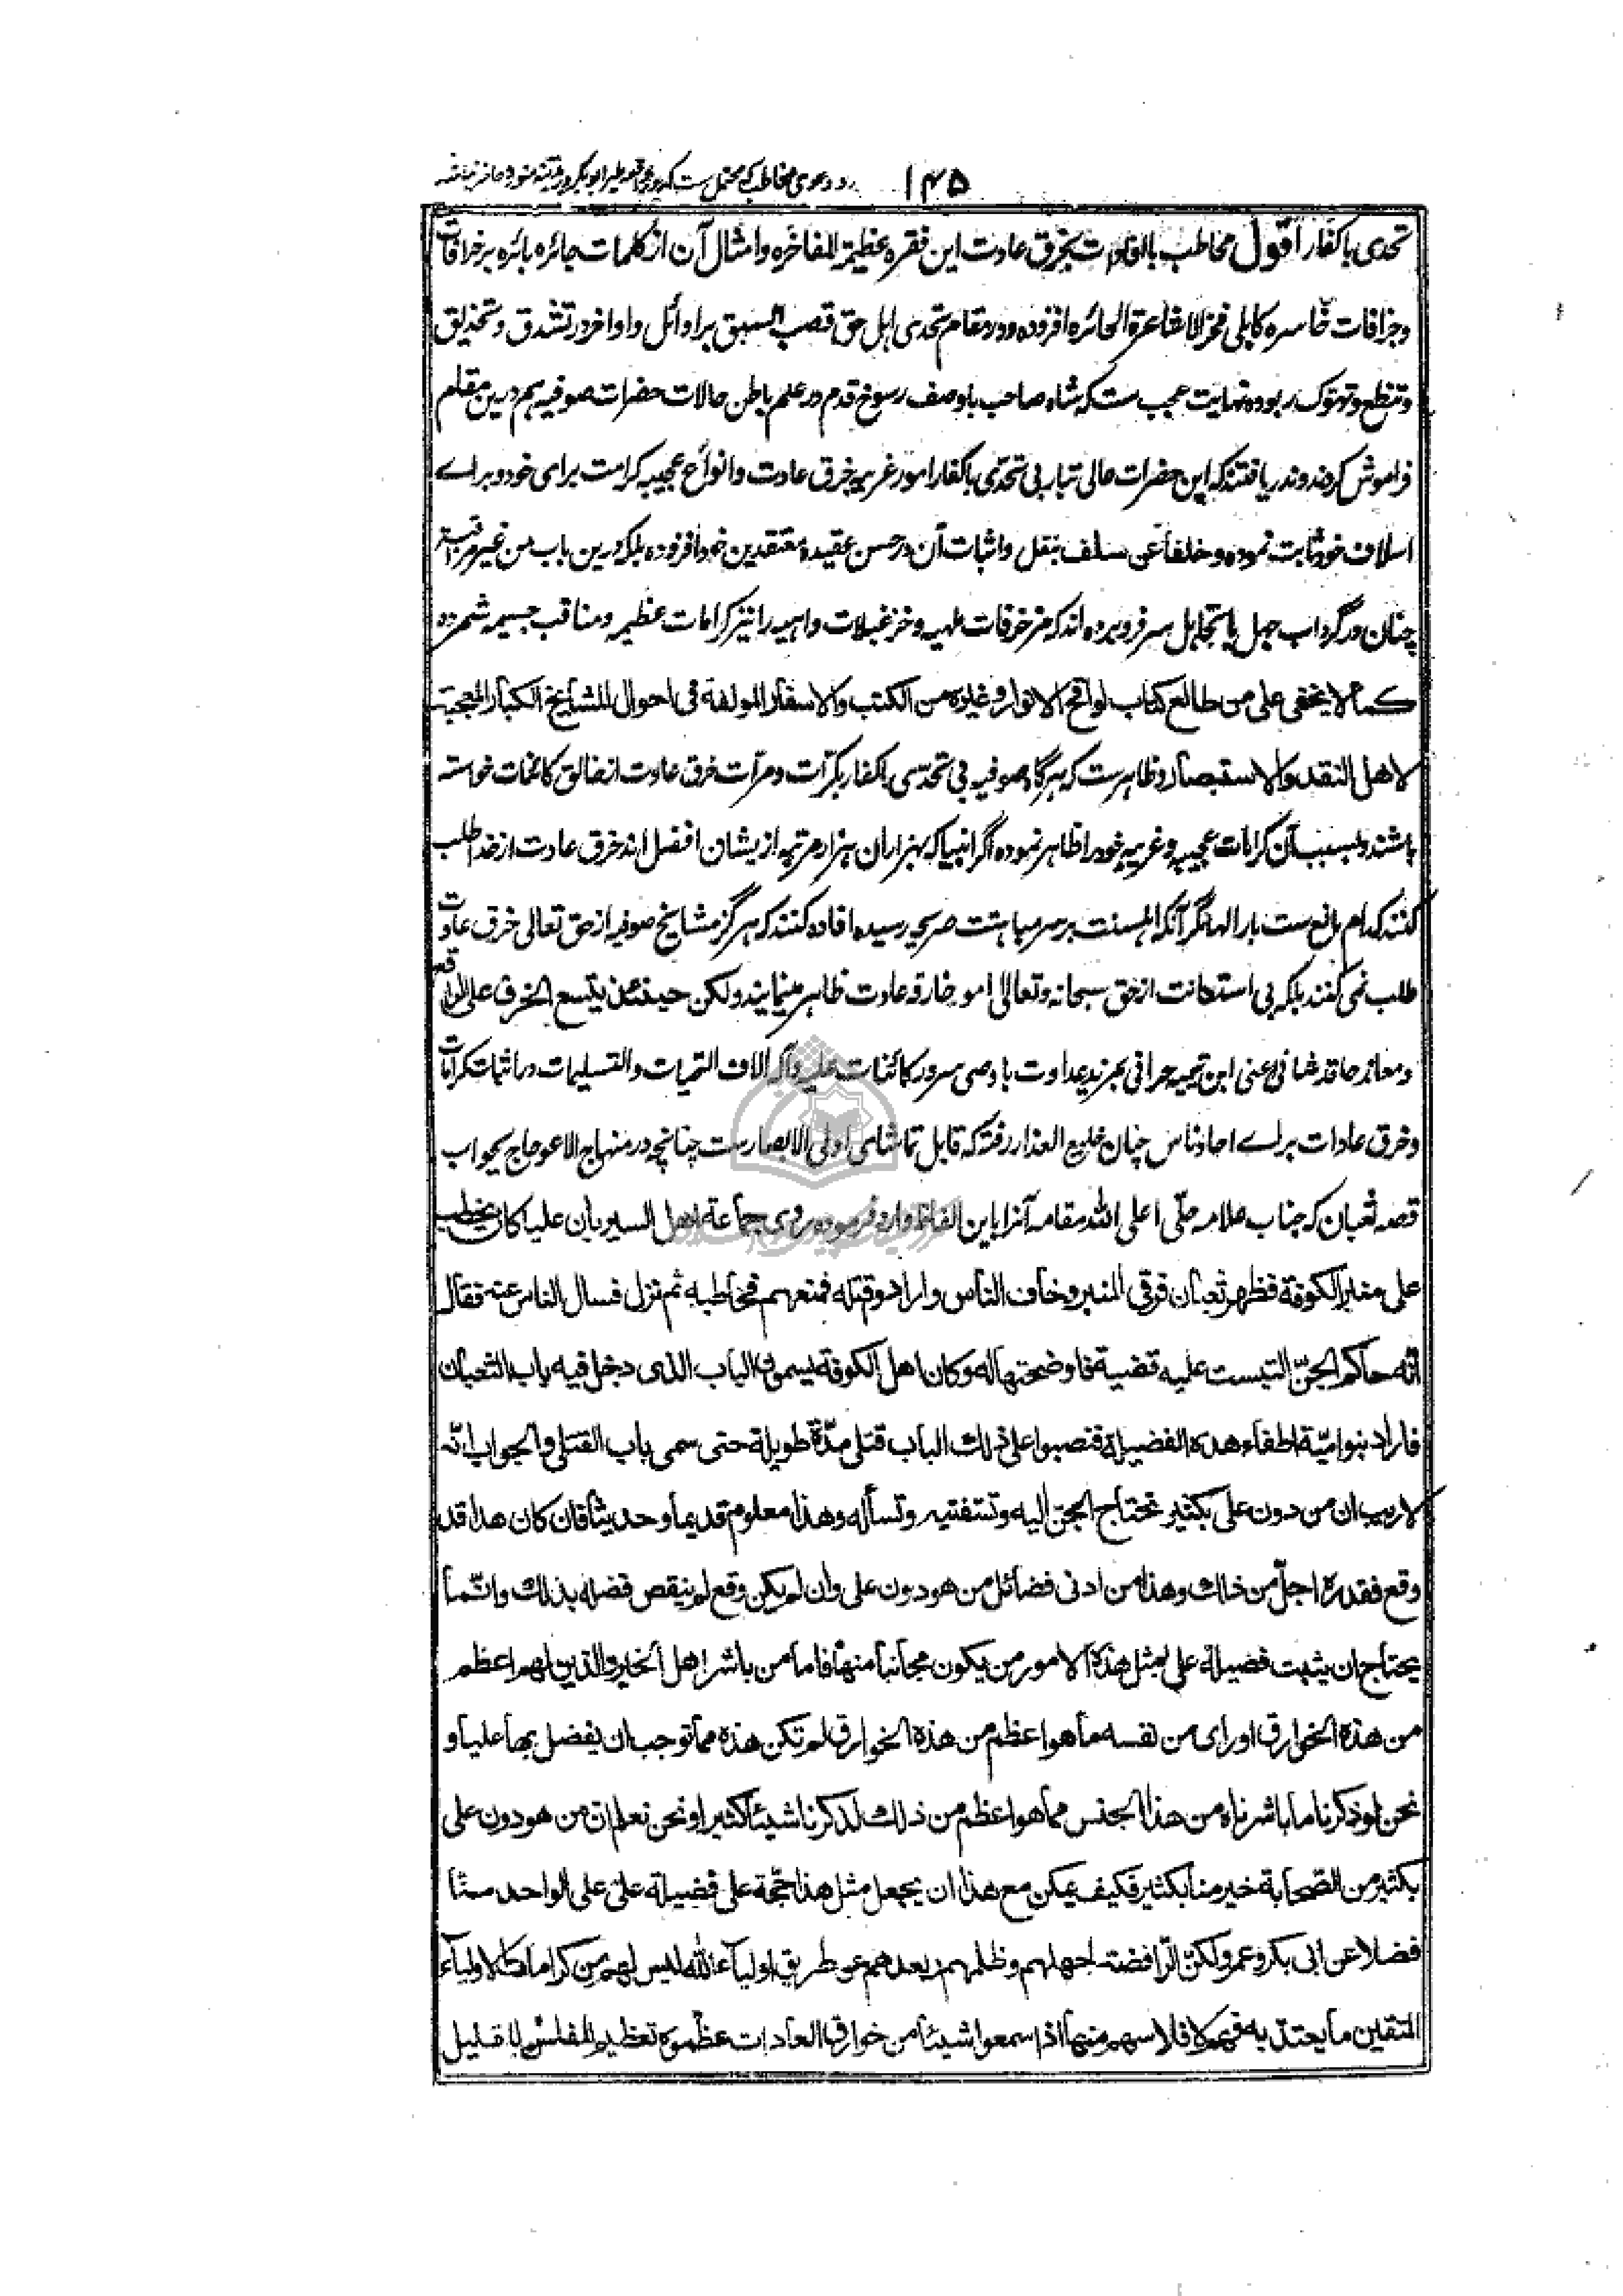 ۱۴۵ رد دعوی مخاطب که محتمل ست که در واقعه طیر ابو بکر در مدینه منوره حاضر نباشد
تحدی با کفار اقول مخاطب بالقاومت بخرق عادت این فقره عظیمة المفاخره و امثال آن از کلمات جائره بائره بر خرافات
و جزافات خاسره کابلی فخر الاشاعرة الحائره افزوده و در مقام تحدی اہل حق قصب السبق بر اوائل و اواخر در تشدق و تحذلق
و تنطع و تہوک ربوده نہایت عجب ست که شاه صاحب با وصف رسوخ قدم در علم باطن حالات حضرات صوفیه ہم درین مقام
فراموش کردند و ندریافتند که این حضرات عالی تبار بی تحدّی با کفار امور غریبه خرق عادت و انواع عجیبه کرامت برای خود و براے
اسلاف خود ثابت نموده و خلفاً عن سلف بنقل و اثبات آن در حسن عقیده معتقدین خود افزوده بلکه درین باب من غیر مراقبة
چنان در گرداب جہل یا تجاہل سر فرو برده اند که مزخرفات ملہیه و خزعبلات واہیه را نیز کرامات عظیمه و مناقب جسیمه شمرده
کما لا یخفی علی من طالع کتاب لواقح الانوار و غیره من الکتب و الاسفار المولفة فی احوال المشایخ الکبار المعجبة
لاهل النقد و الاستبصار و ظاہرست که ہرگاه صوفیه بی تحدّی با کفار بکرّات و مرّات خرق عادت از خالق کائنات خواسته
باشند و بسبب آن کرامات عجیبه و غریبه خود را ظاہر نموده اگر انبیا که بہزاران ہزار مرتبه ازیشان افضل اند خرق عادت از خدا طلب
کنند کدام مانع ست بار الہا مگر آنکه اہلسنت بر سر مباہتت صریحه رسیده افاده کنند که ہرگز مشایخ صوفیه از حق تعالی خرق عادت
طلب نمی کنند بلکه بی استعانت از حق سبحانه و تعالی امور خارقه عادت ظاہر مینمایند و لکن حینئذ یتسع الخرق علی الراقع
و معاند حاقد شانی اعنی ابن تیمیه حرانی بمزید عداوت با وصی سرور کائنات علیه و آله آلاف التحیات و التسلیمات در اثبات کرامات
و خرق عادات براے احاد ناس چنان خلیع العذار رفته که قابل تماشای اولی الابصارست چنانچه در منہاج الاعوجاج بجواب
قصه ثعبان که جناب علامه حلّی اعلی الله مقامه آنرا باین الفاظ وارد فرموده روی جماعة اهل السیر بان علیا کان یخطب
علی منبر الکوفة فظهر ثعبان فرقی المنبر و خاف الناس و ارادوا قتله فمنعهم فخاطبه ثم نزل فسال الناس عنه فقال
انّه حاکم الجنّ التبست علیه قضیة فاوضحتها له و کان اهل الکوفة یسمون الباب الذی دخل فیه باب الثعبان
فاراد بنو امیّة اطفاء هذه الفضیلة فنصبوا علی ذلك الباب قتلی مدّة طویلة حتی سمی باب القتلی و الجواب انّه
لا ریب ان من دون علی بکثیر تحتاج الجنّ الیه و تستفتیه و تسأله و هذا معلوم قدیما و حدیثا فان کان هذا قد
وقع فقدره اجلّ من ذلك و هذا من ادنی فضائل من هو دون علی و ان لم یکن وقع لم ینقص فضله بذلك و انّما
یحتاج ان یثبت فضیلة علی بمثل هذه الامور من یکون مجانبا منها فاما من باشر اهل الخیر و الذین لهم اعظم
من هذه الخوارق او رای من نفسه ما هو اعظم من هذه الخوارق لم تکن هذه مما توجب ان یفضل بها علیا و
نحن لو ذکرنا ما باشرناه من هذا الجنس مما هو اعظم من ذلك لذکرنا شیئا کثیرا و نحن نعلم ان من هو دون علی
بکثیر من الصّحابة خیر منا بکثیر فکیف یمکن مع هذا ان یجعل مثل هذا حجّة علی فضیلة علی علی الواحد منّا
فضلا عن ابی بکر و عمر و لکن الرّافضة لجهلهم و ظلمهم و بعدهم عن طریق اولیآء الله لیس لهم من کرامات الاولیآء
المتقین ما یعتدّ به فهم لافلاسهم منها اذا سمعوا شیئا من خوارق العادات عظّموه تعظیم المفلس للقلیل